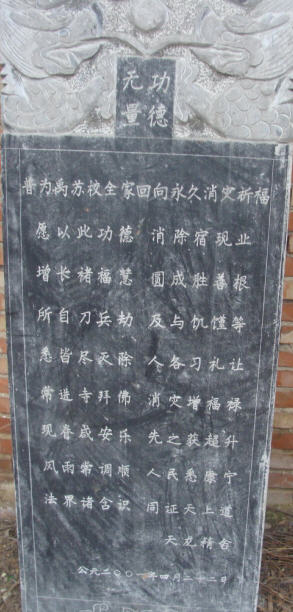 功德
无量
普为禹苏校全家回向永久消灾祈福
愿以此功德 消除宿现业
增长褚福慧 圆成胜善根
所自刀兵劫 及与饥馑等
悉皆尽灭除 人各习礼让
常进寺拜佛 消灾增福禄
现眷咸安乐 先之获超升
风雨常调顺 人民悉康宁
法界诸含识 同证天上道
天龙精舍
公元二〇〇一年四月二十二日